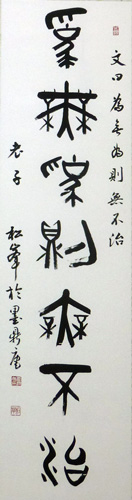 為無為則無不治
文曰為無為則無不治
老子
松峯於墨鼎廬